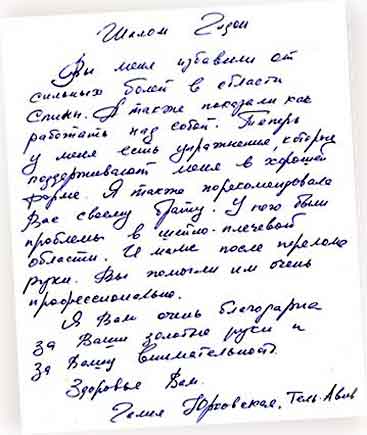 Шалом Гидон
Вы меня избавили от
сильных болей в области
спины. А также показали как
работать над собой. Теперь
у меня есть упражнения, которые
поддерживают меня в хорошей
форме. Я также порекомендовала
Вас своему брату. У него были
проблемы в шейно-плечевой
области. И маме после перелома
руки. Вы помогли им очень
профессионально.
Я Вам очень благодарна
за Ваши золотые руки и
за Вашу внимательность.
Здоровья Вам.
Юрковская, Тель-Авив